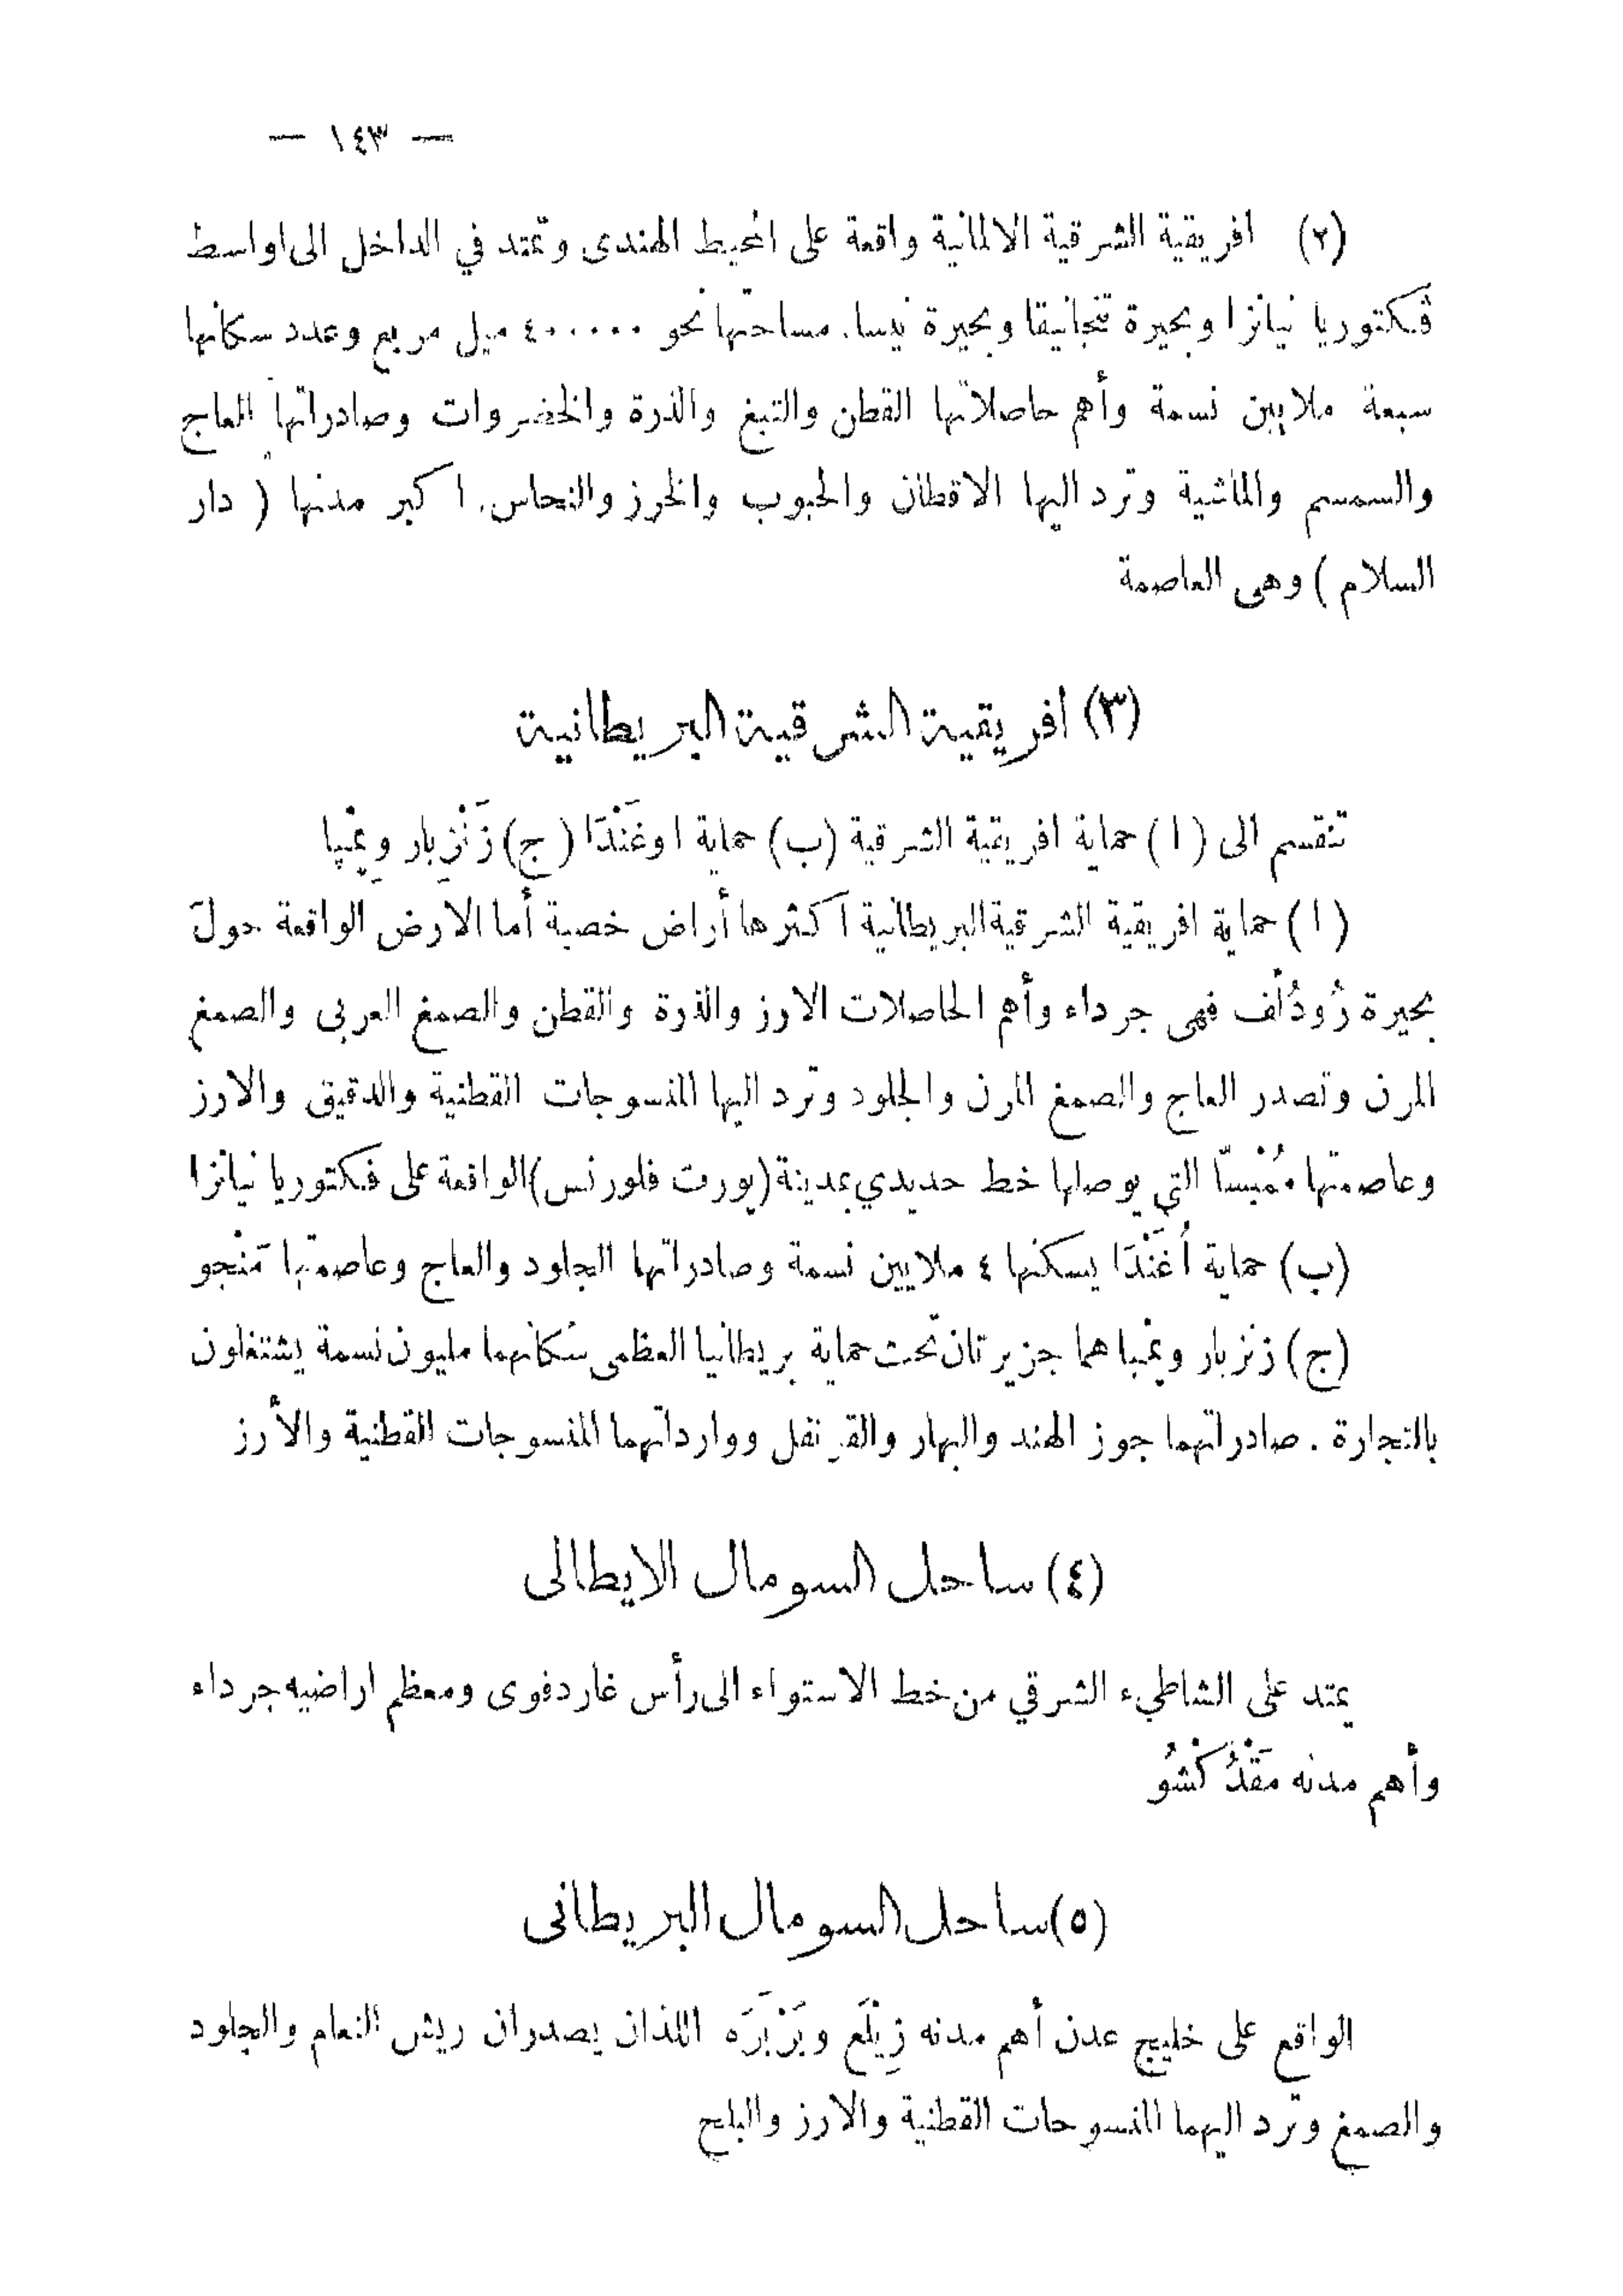 — ١٤٣ —
(٢) افريقية الشرقية الالمانية واقعة على المحيط الهندى وتمتد في الداخل الى اواسط
ڤكتوريا نيانزا وبحيرة تنجانيقا وبحيرة نيسا. مساحتها نحو ٤٠٠٠٠٠ ميل مربع وعدد سكانها
سبعة ملايين نسمة وأهم حاصلاتها القطن والتبغ والذرة والخضروات وصادراتها العاج
والسمسم والماشية وترد اليها الاقطان والحبوب والخرز والنحاس. اكبر مدنها ( دار
السلام ) وهى العاصمة
(٣) افريقية الشرقية البريطانية
تنقسم الى ( ا ) حماية افريقية الشرقية (ب) حماية اوغَنْدَا ( ج) زَنْزِبار وبِمْبا
( ا ) حماية افريقية الشرقية البريطانية اكثرها أراض خصبة أما الارض الواقعة حول
بحيرة رُودُلف فهى جرداء وأهم الحاصلات الارز والذرة والقطن والصمغ العربى والصمغ
المرن وتصدر العاج والصمغ المرن والجلود وترد اليها المنسوجات القطنية والدقيق والارز
وعاصمتها مُمْبسّا التي يوصلها خط حديدي بمدينة (بورت فلورنس) الواقعة على ڤكتوريا نيانزا
(ب) حماية أُغَنْدَا يسكنها ٤ ملايين نسمة وصادراتها الجلود والعاج وعاصمتها مَنْجو
(ج) زنزبار وبمبا هما جزيرتان تحت حماية بريطانيا العظمى سكانهما مليون نسمة يشتغلون
بالتجارة . صادراتهما جوز الهند والبهار والقرنفل ووارداتهما المنسوجات القطنية والأرز
(٤) ساحل السومال الايطالى
يمتد على الشاطىء الشرقي من خط الاستواء الى رأس غاردفوى ومعظم اراضيه جرداء
وأهم مدنه مَقْدُكْشُو
(٥) ساحل السومال البريطانى
الواقع على خليج عدن أهم مدنه زِيْلَع وبَرْبَرَه اللذان يصدران ريش النعام والجلود
والصمغ وترد اليهما المنسوجات القطنية والارز والبلح